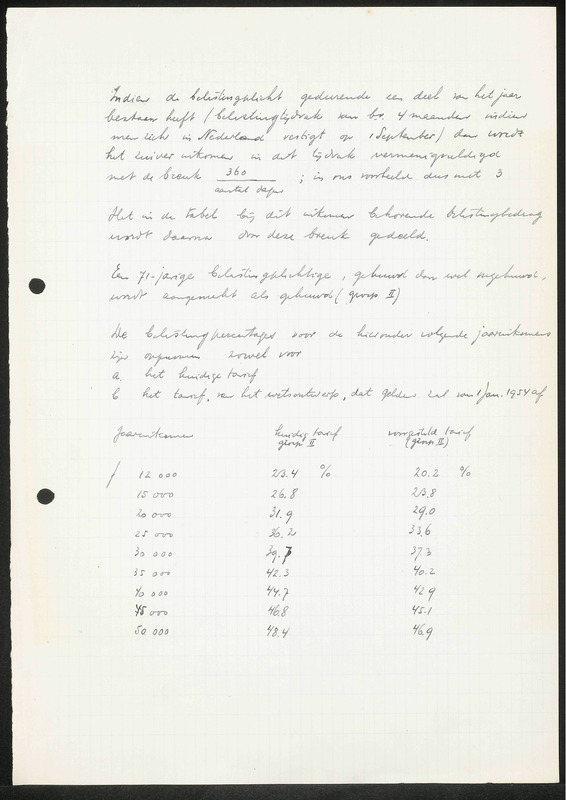 Indien de belastingplicht gedurende een deel van het jaar
bestaan heeft (belastingtijdvak van bv. 4 maanden indien
men zich in Nederland vestigt op 1 September) dan wordt
het zuiver inkomen in dit tijdvak vermenigvuldigd
met de breuk 360 / aantal dagen ; in ons voorbeeld dus met 3
Het in de tabel bij dit inkomen behorende belastingbedrag
wordt daarna door deze breuk gedeeld.
Een 71-jarige belastingplichtige, gehuwd dan wel ongehuwd,
wordt aangemerkt als gehuwd (groep II)
De belastingpercentages voor de hieronder volgende jaarinkomens
zijn opgenomen zowel voor
a. het huidige tarief
b het tarief, van het wetsontwerp, dat gelden zal van 1 Jan. 1954 af
Jaarinkomen huidig tarief groep II voorgesteld tarief (groep II)
f 12 000 23.4 % 20.2 %
15 000 26.8 23.8
20 000 31.9 29.0
25 000 36.2 33.6
30 000 39.7 37.3
35 000 42.3 40.2
40 000 44.7 42.9
45 000 46.8 45.1
50 000 48.4 46.9